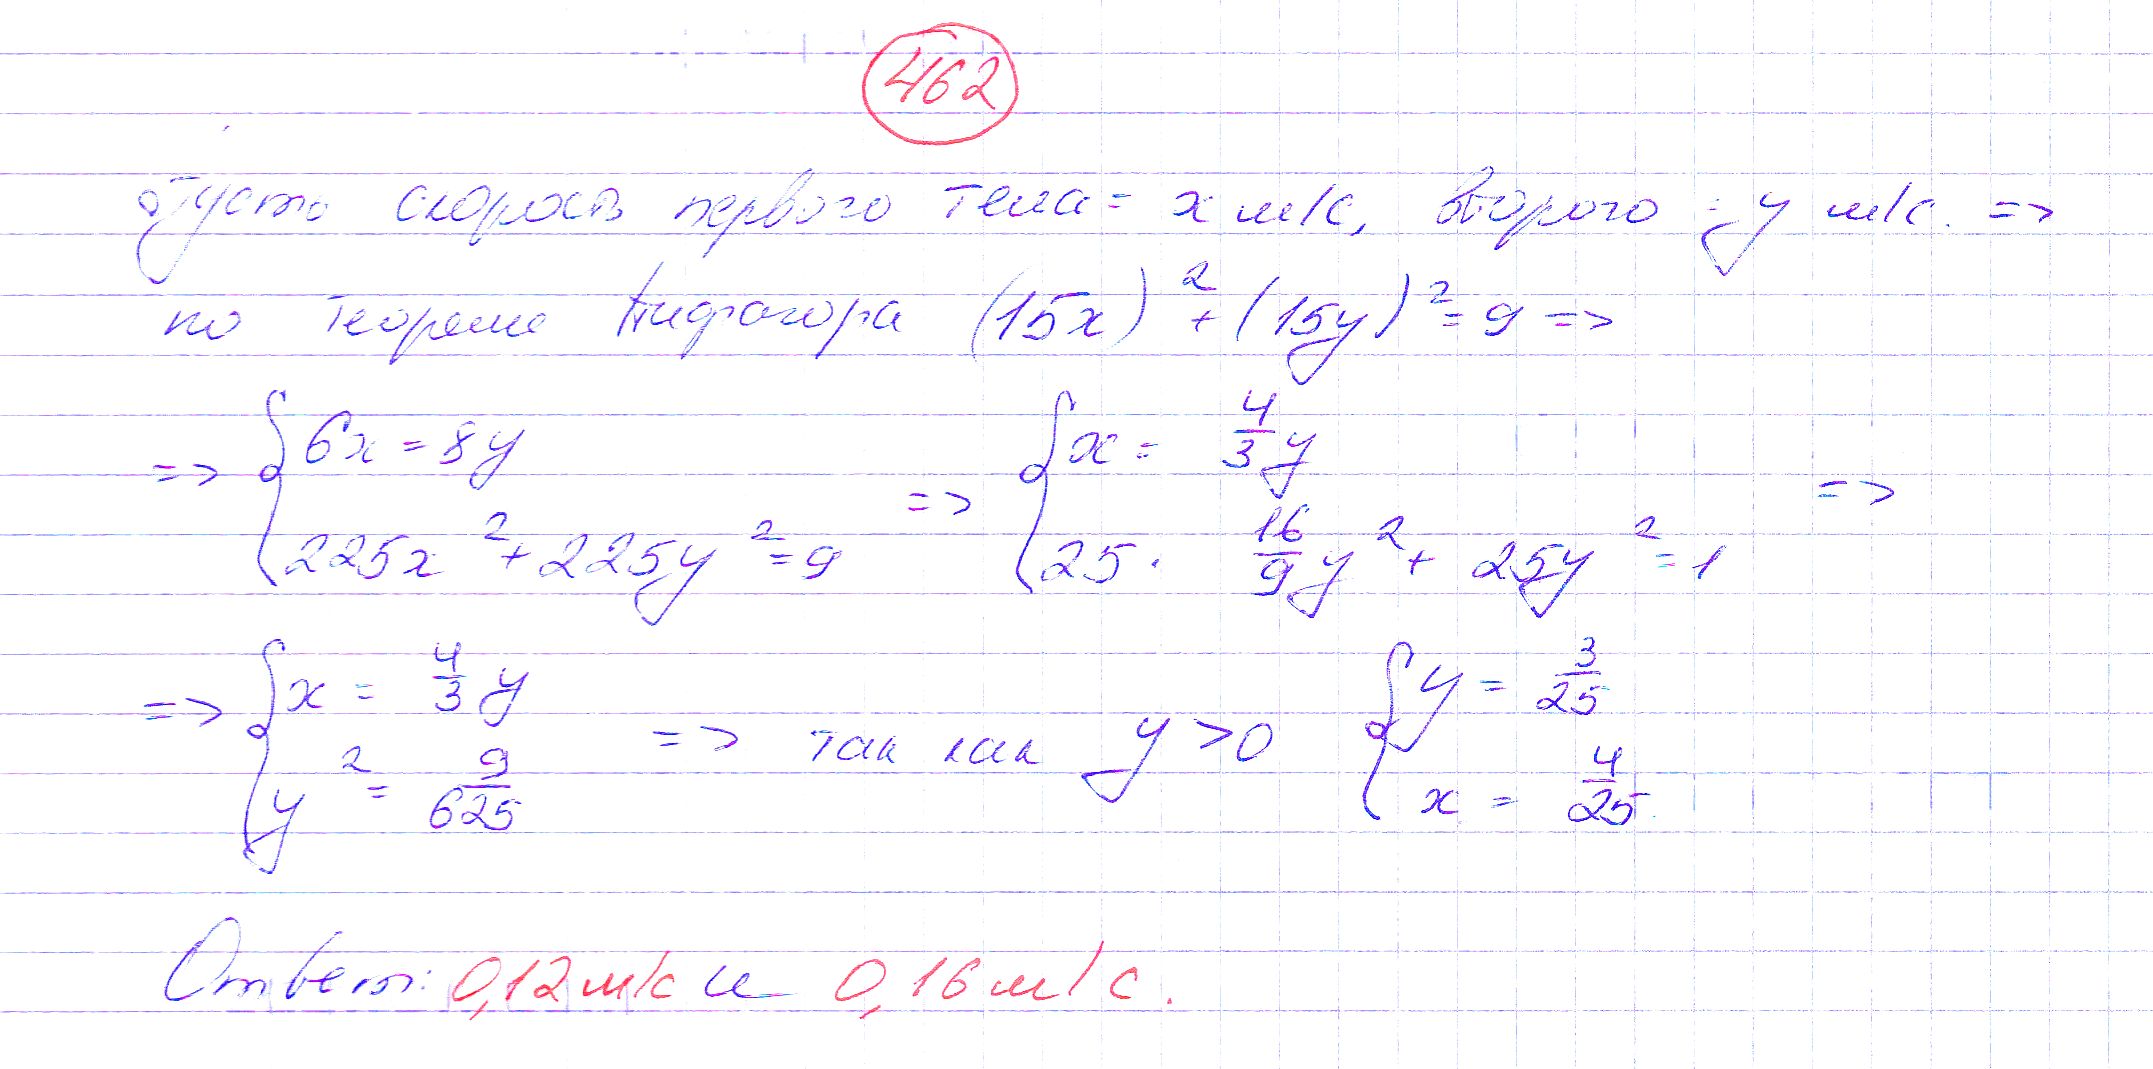 462
Пусть скорость первого тела = x м/с, второго = y м/с. =>
по теореме Пифагора (15x)² + (15y)² = 9 =>
=> { 6x = 8y => { x = 4/3 y =>
225x² + 225y² = 9 25 · 16/9 y² + 25y² = 1
=> { x = 4/3 y => так как y > 0 { y = 3/25
y² = 9/625 x = 4/25
Ответ: 0,12 м/с и 0,16 м/с.